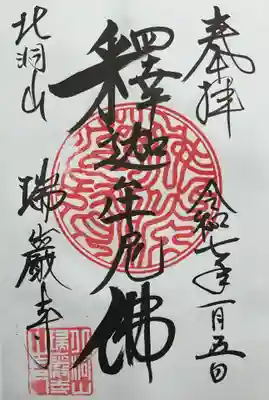 奉拝
令和七年一月五日
釋迦牟尼佛
北洞山
瑞巌寺